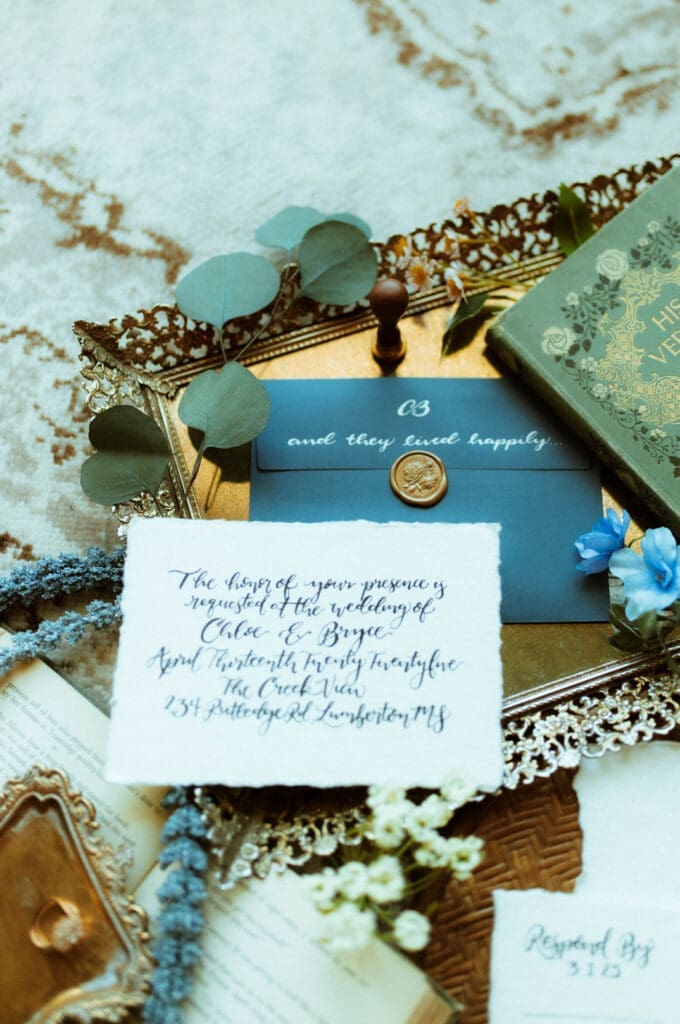 CB
and they lived happily...
HIS
VER
The honor of your presence is
requested at the wedding of
Chloe & Bryce
April Thirteenth Twenty Twentyfive
The Creek View
234 Rutledge Rd, Lumberton MS
Respond By
3.1.25